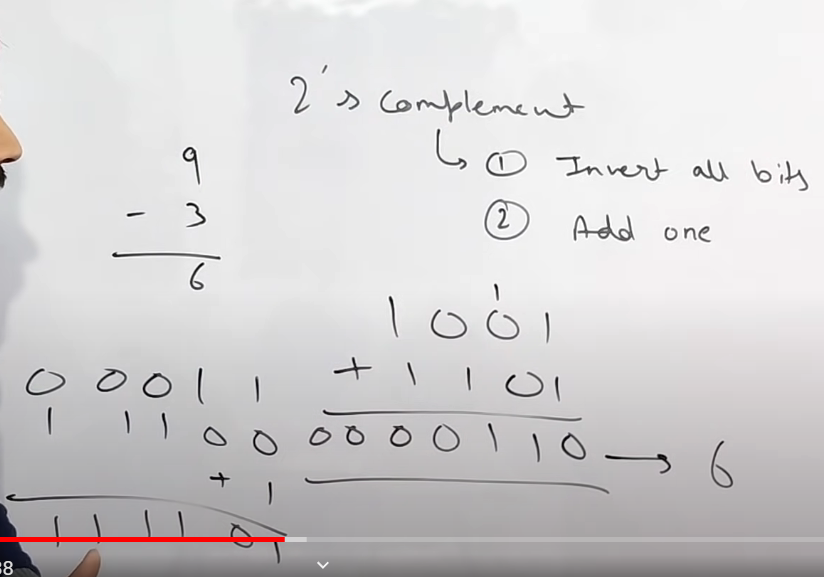 2's complement
↳ ① Invert all bits
② Add one
9
- 3
6
1
1 0 0 1
+ 1 1 0 1
0 0 0 0 1 1 0 → 6
0 0 0 1 1
1 1 1 0 0
+ 1
1 1 1 1 0 1
38